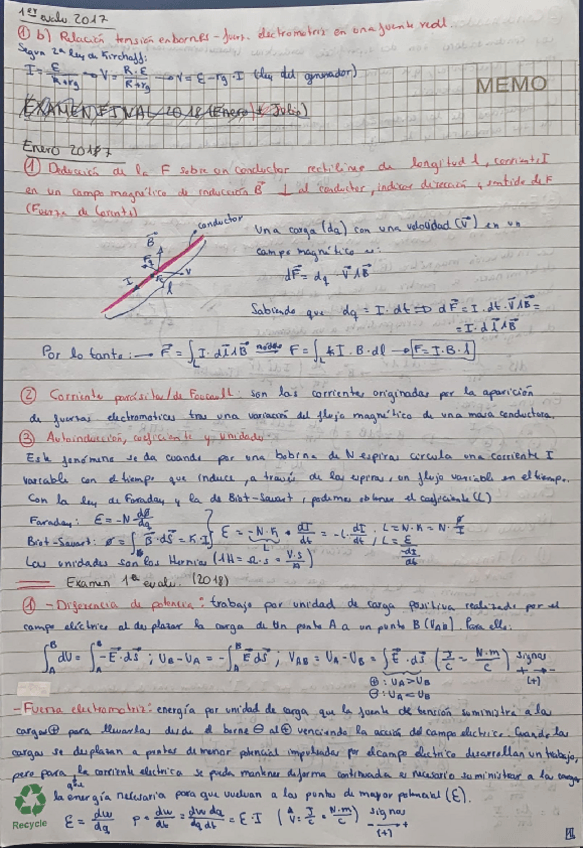 1er evalu 2017
① b) Relación tensión en bornes - fuerz. electromotriz en una fuente real.
Segun 2ª Ley de Kirchoff:
I = E/(R+rg) → V = R·E/(R+rg) → V = E - rg·I (Ley del generador)
MEMO
EXAMEN FINAL 2018 (Enero) + Julio)
Enero 2017
① Deducción de la F sobre un conductor rectilíneo de longitud l, corriente I
en un campo magnético de inducción B⃗ ⊥ al conductor, indicar dirección y sentido de F
(Fuerza de Lorentz)
conductor
B⃗
I
l
v
Una carga (dq) con una velocidad (v⃗) en un
campo magnético es:
dF⃗ = dq · v⃗ ∧ B⃗
Sabiendo que dq = I·dt ⇒ dF⃗ = I·dt·v⃗∧B⃗ =
= I·dl⃗∧B⃗
Por lo tanto: → F⃗ = ∫L I·dl⃗∧B⃗ módulo F = ∫L I·B·dl → F = I·B·l
② Corriente parásitas/de Foucault: son las corrientes originadas por la aparición
de fuerzas electromotrices tras una variación del flujo magnético de una masa conductora.
③ Autoinducción, coeficiente y unidades
Este fenómeno se da cuando por una bobina de N espiras circula una corriente I
variable con el tiempo que induce, a través de las espiras, un flujo variable en el tiempo.
Con la ley de Faraday y la de Biot-Savart, podemos obtener el coeficiente (L)
Faraday: E = -N dø/dq
Biot-Savart: ø = ∫ B⃗·dS⃗ = K·I } E = -N·K · dI/dt = -L·dI/dt ; L = N·K = N·ø/I ; L = E/(-dI/dt)
Las unidades son los Hernios (1H = Ω·s = V·s/A)
Examen 1ª evalu. (2018)
① - Diferencia de potencia: trabajo por unidad de carga positiva realizado por el
campo eléctrico al desplazar la carga de un punto A a un punto B (VAB). Para ello:
∫A^B dU = ∫A^B -E⃗·ds⃗ ; UB-UA = -∫A^B E⃗ ds⃗ ; VAB = UA-UB = ∫ E⃗·ds⃗ (J/C = N·m/C) signos
⊕: UA>UB
⊖: UA<UB
+ → -
(+)
- Fuerza electromotriz: energía por unidad de carga que la fuente de tensión suministra a la
cargas⊕ para llevarlas desde el borne ⊖ al ⊕ venciendo la acción del campo electrico. Cuando las
cargas se desplazan a puntos de menor potencial impulsadas por el campo electrico desarrollan un trabajo,
pero para que la corriente electrica se pueda mantener de forma continuada es necesario suministrar a las cargas
la energía necesaria para que vuelvan a los puntos de mayor potencial (E).
E = dw/dq P = dw/dt = dw dq/dq dt = E·I (V = J/C = N·m/C) signos
- → +
(+)
Recycle